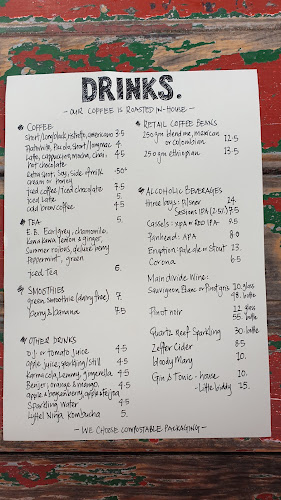 DRINKS.
- OUR COFFEE IS ROASTED IN-HOUSE -
COFFEE
Short/long black, ristretto, americano 3.5
Flatwhite, Piccolo, Short/long mac 4.
Latte, cappuccino, mocha, chai, 4.5
hot chocolate
Extra shot, Soy, side of milk .50
cream or honey
iced coffee/iced chocolate 7.5
iced latte 5.
cold brew coffee 4.5
TEA 5.
E.B. Earl grey, chamomile,
Kawa kawa, lemon & ginger,
Summer robins, deluxe berry
Peppermint, green
Iced Tea 6.
SMOOTHIES
Green smoothie (dairy free) 7.
berry & banana 7.5
OTHER DRINKS
O.J. or tomato juice 4.5
Apple juice, sparkling/still 4.5
Karma cola, Lemmy, gingerella 4.5
Benjer; orange & mango, 4.5
apple & boysenberry, apple & feijoa
Sparkling water 4.5
Lyttel Ninja Kombucha 5.
RETAIL COFFEE BEANS
250gm blend me, mexican 12.5
or colombian
250gm ethiopian 13.5
ALCOHOLIC BEVERAGES
three boys: Pilsner 24.
Sessions IPA (2.5%) 7.5
Cassels: APA or Red IPA 8.5
Panhead: APA 8.0
Eruption: Pale ale or Stout 23.
Corona 6.5
Main divide Wine:
Sauvignon Blanc or Pinot gris 10. glass
48. bottle
Pinot noir 12 glass
55 bottle
Quartz Reef Sparkling 30. bottle
Zeffer Cider 8.5
bloody Mary 10.
Gin & Tonic - house 10.
- Little biddy 15.
- WE CHOOSE COMPOSTABLE PACKAGING -